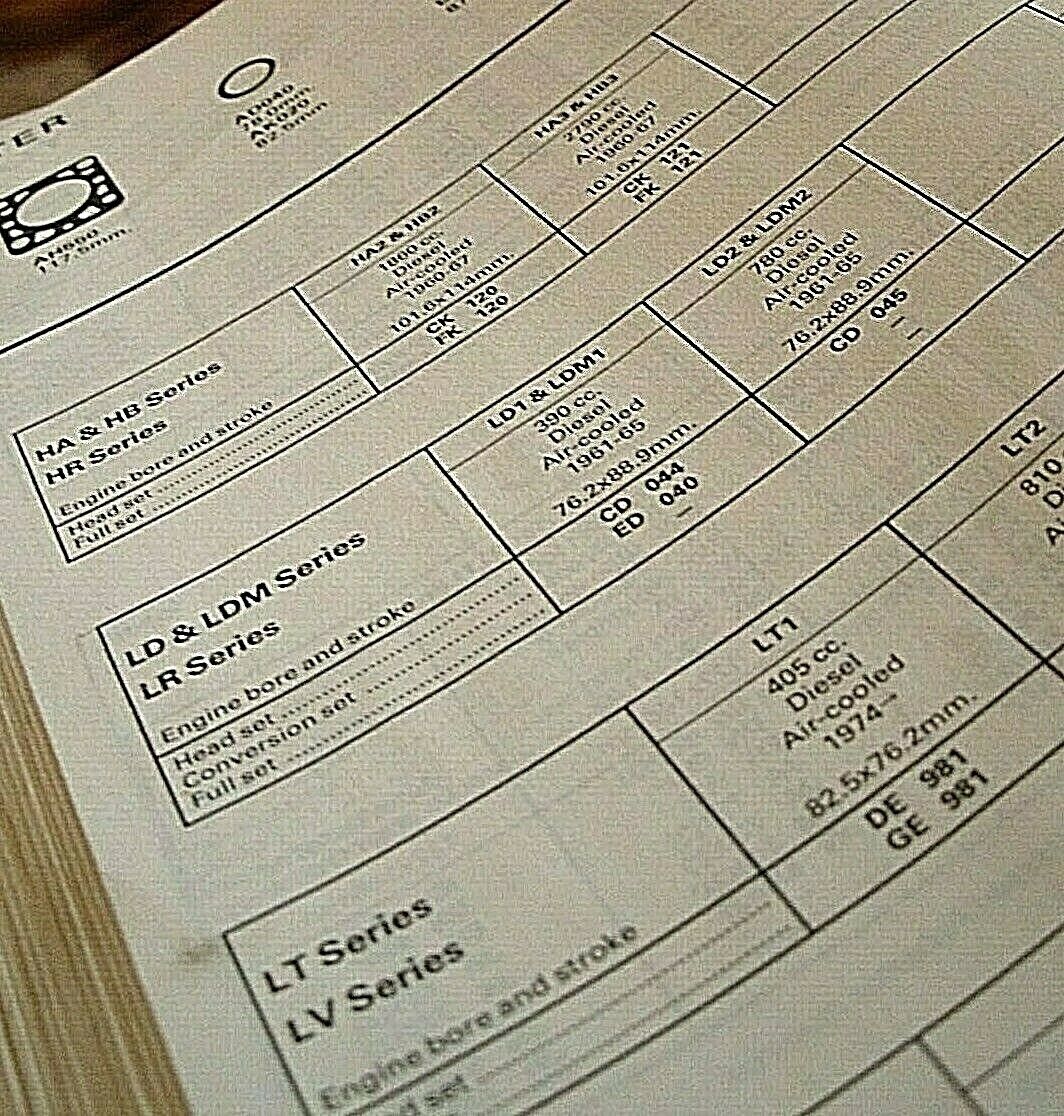 TER
AH580
117.5mm.
AD040
AK020
HA & HB Series
HR Series
Engine bore and stroke
Head set
Full set
HA2 & HB2
Diesel
Air-cooled
1960-67
101.6x114mm.
CK 120
FK 120
HA3 & HB3
2790 cc.
Diesel
Air-cooled
1960-67
101.6x114mm.
CK 121
FK 121
LD & LDM Series
LR Series
Engine bore and stroke
Head set
Conversion set
Full set
LD1 & LDM1
390 cc.
Diesel
Air-cooled
1961-65
76.2x88.9mm.
CD 044
ED 040
—
LD2 & LDM2
780 cc.
Diesel
Air-cooled
1961-65
76.2x88.9mm.
CD 045
—
—
LT Series
LV Series
Engine bore and stroke
LT1
405 cc.
Diesel
Air-cooled
1974→
82.5x76.2mm.
DE 981
GE 981
LT2
810
D
A